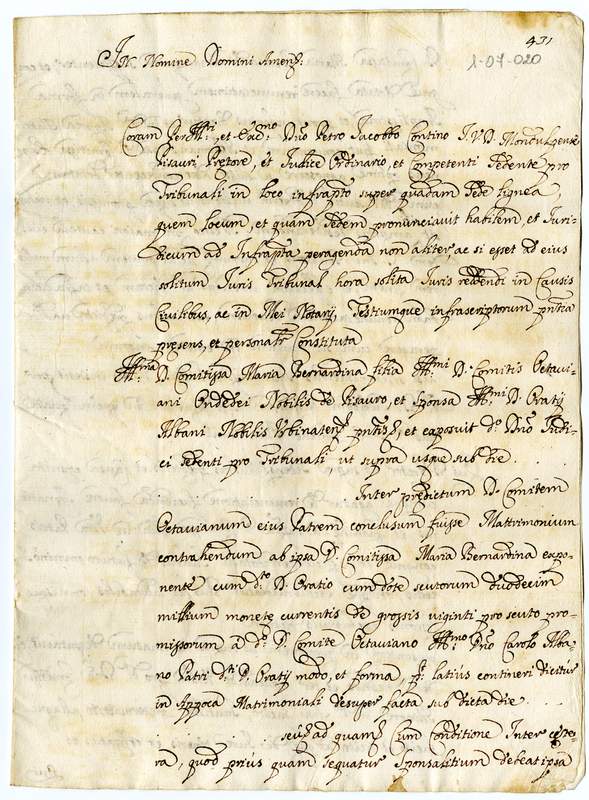 431
1-07-020
In Nomine Domini Amen:
Coram Per Ill:ri, et Ecc:mo D\~no Petro Jacobbo Contino I.V.D. Mondulgense
Pisauri Pretore, et Iudice Ordinario, et Competenti Sedente pro
Tribunali in loco infra\~pto super quadam sede lignea,
quem locum, et quam sedem pronunciavit habilem, et Iuri-
dicum ad Infra\~pta peragenda non aliter ac si esset ad eius
solitum Iuris Tribunal hora solita Iuris reddendi in Causis
Civilibus, ac in Mei Notarij, Testiumque infrascriptorum p\~ntia
presens, et personal\~r Constituta
Ill:ma D. Comitissa Maria Bernardina filia Ill:mi D. Comitis Octavi-
ani Ondedei Nobilis de Pisauro, et Sponsa Ill:mi D. Oratij
Albani Nobilis Urbinaten: et exposuit d:o D\~no Iudi-
ci sedenti pro Tribunali ut supra usque sub die . . . .
. . . Inter predictum D. Comitem
Octavianum eius Patrem conclusum fuisse Mattrimonium
contrahendum ab ipsa D. Comitissa Maria Bernardina expo-
nente cum d:to D. Oratio cum dote scutorum duodecim
millium monete currentis de grossis viginti pro scuto pro-
missorum a d:o D. Comite Octaviano Ill:mo D\~no Carolo Alba-
no Patri d:ti D. Oratij modo, et forma, latius contineri dicitur
in Appoca Matrimoniali desuper facta sub dicta die . . .
. . . . seu ad quam cum Conditione Inter cete-
ra, quod prius quam sequatur Sponsalitium debeat ipsa